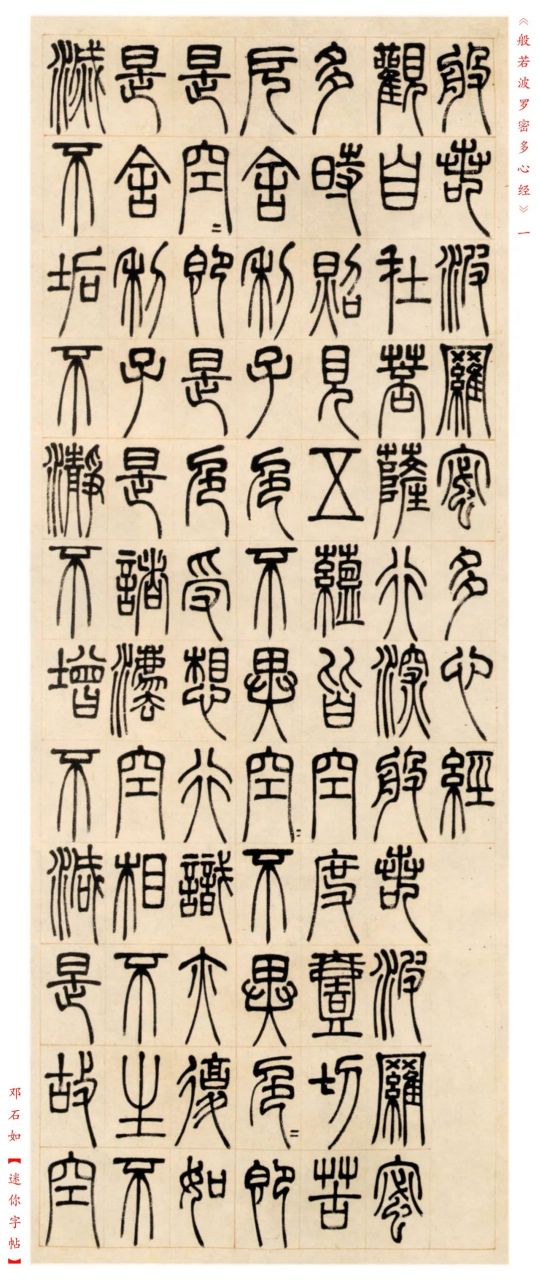 《般若波罗密多心经》一
般若波羅密多心經
觀自在菩薩行深般若波羅密
多時照見五蘊皆空度壹切苦
厄舍利子色不異空〻不異色〻即
是空〻即是色受想行識亦復如
是舍利子是諸灋空相不生不
滅不垢不瀞不增不減是故空
邓石如【迷你字帖】